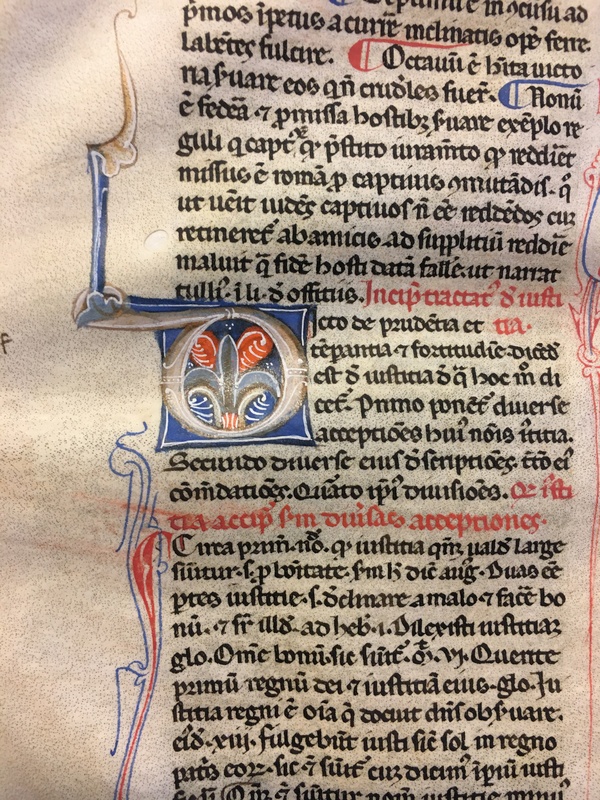 p̄mos īpetus a curie inclinatis ope ferre
labētes fulcire. Octauū ē hītauicto
ria ẜuare eos qn̄ crudles fuer̄. Nonū
ē fedēa ⁊ ꝓmissa hostibꝫ ẜuare exēplo re
guli q capt ꝙ p̄stito iuram̄to ꝙ reddiet
missus ē romā ꝓ captiuis ꝯmutādis. q̊
ut uēit iudēs captiuos n̄ eē reddēdos cur
retineret᷑ ab amicis. ad suppliciū reddie
maluit q̄ fidē hosti datā falle. ut narrat
tulli᷒. i li. d̄ officiis. Incip̄ tractat᷒ d̄ iusti
cto de prudētia et tia.
tēpantia ⁊ fortitudīe. dicēd
est d̄ iusticia d̄ q̄ hoc m̄ di
cet᷑. Primo ponēt᷑ diuerse
acceptiōes hui᷒ nōis iticia.
Secundo diuerse eius d̄scriptiōes. t̄tō ei᷒
cōm̄datiōes. Quāto ip̄i᷒ diuisiōes. Qr iusti
tia accip̄ ẜm diuīsas acceptiones.
Circa prim. nō. ꝙ iusticia qn̄ꝫ ualde large
sūitur .s. ꝓ bōitate. ẜm ꝙ dic̄ aug. Duas eē
ptes iusticie .s. d̄clinare a malo ⁊ facē bo
nū. ⁊ ẜr illd. ad heb. i. Dilexisti iusticiaꝫ
glo. Om̄e bonū. sic sūit᷑. VI. Querite
primū regnū dei ⁊ iusticiā eius. glo. Iu
sticia regni ē oīa q̄ docuit dn̄s obẜuare.
eid. xiii. fulgebūt iusti sic̄ sol in regno
patis eoꝝ. sic ⁊ sūit᷑ cur dicim᷒ ip̄iū iusti